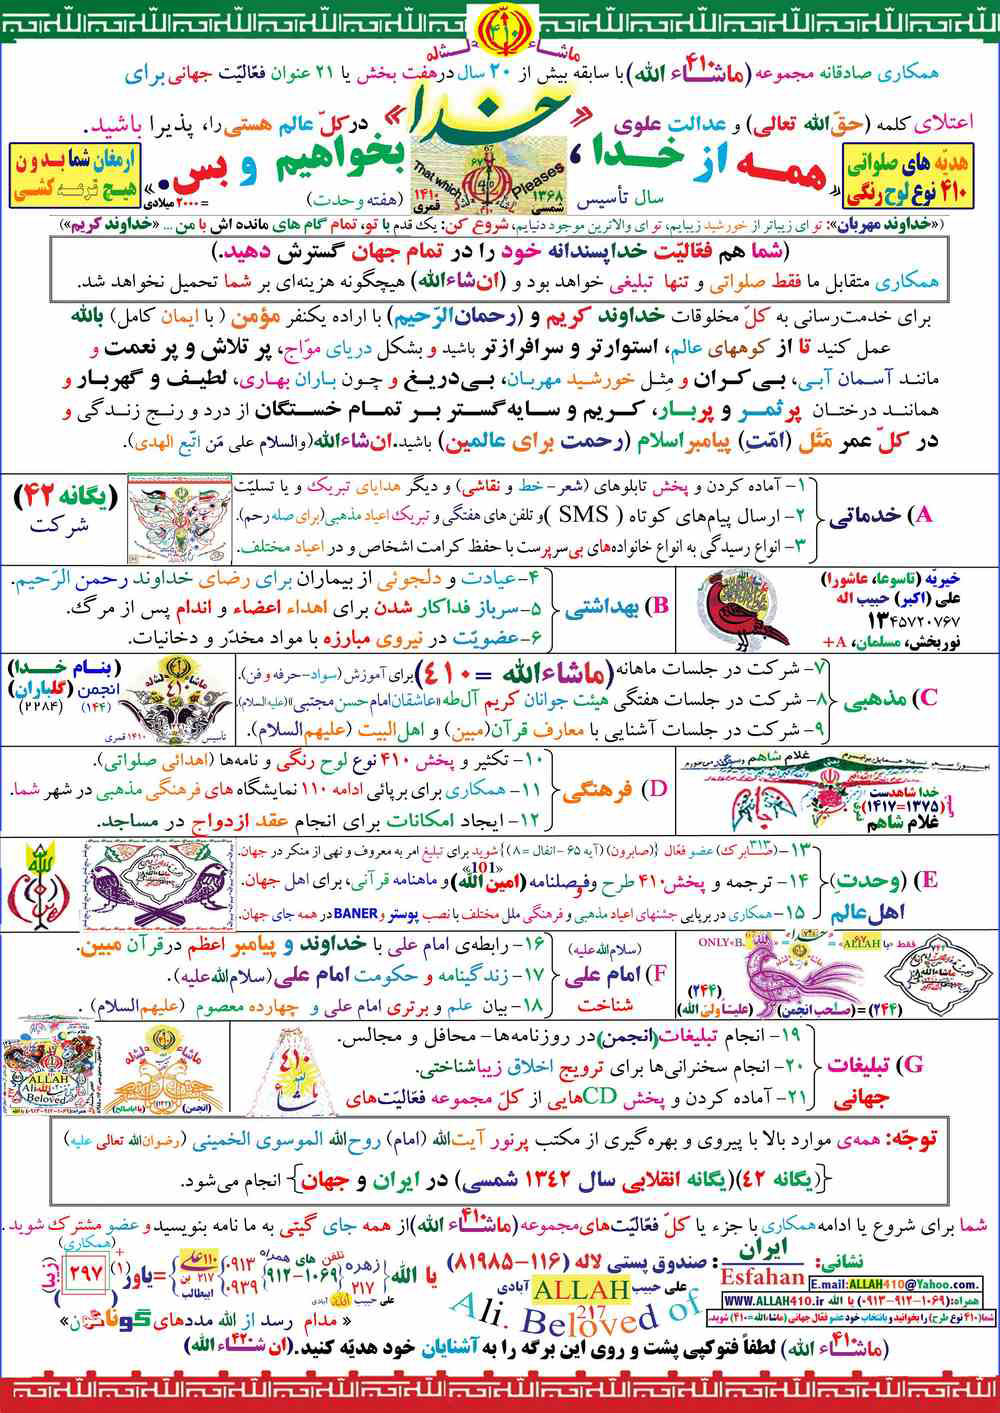 ماشاءالله
همکاری صادقانه مجموعه (ماشاء الله) با سابقه بیش از ۲۰ سال درهفت بخش یا ۲۱ عنوان فعّالیّت جهانی برای
۴۱۰
اعتلای کلمه (حقّ الله تعالی) و عدالت علوی «خدا» درکلّ عالم هستی را، پذیرا باشید.
هدیّه های صلواتی
۴۱۰ نوع لوح رنگی
«همه از خدا، بخواهیم و بس.»
ارمغان شما بدون
هیچ قرعه کشی
That which Pleases
سال تأسیس ۱۳۶۸ شمسی ۱۴۱۰ قمری (هفته وحدت) = ۲۰۰۰ میلادی
(«خداوند مهربان»: تو ای زیباتر از خورشید زیبایم، تو ای والاترین موجود دنیایم، شروع کن: یک قدم با تو، تمام گام های مانده اش با من ... «خداوند کریم»)
(شما هم فعّالیّت خداپسندانه خود را در تمام جهان گسترش دهید.)
همکاری متقابل ما فقط صلواتی و تنها تبلیغی خواهد بود و (ان‌شاءالله) هیچگونه هزینه‌ای بر شما تحمیل نخواهد شد.
برای خدمت‌رسانی به کلّ مخلوقات خداوند کریم و (رحمان‌الرّحیم) با اراده یکنفر مؤمن ( با ایمان کامل) بالله
عمل کنید تا از کوههای عالم، استوارتر و سرافرازتر باشید و بشکل دریای موّاج، پر تلاش و پر نعمت و
مانند آسمان آبی، بی‌کران و مِثل خورشید مهربان، بی‌دریغ و چون باران بهاری، لطیف و گهربار و
همانند درختان پرثمر و پربار، کریم و سایه‌گستر بر تمام خستگان از درد و رنج زندگی و
در کلّ عمر مَثَل (امّتِ) پیامبراسلام (رحمت برای عالمین) باشید.ان‌شاءالله(والسلام علی مَن اتّبع الهدی).
A) خدماتی
۱- آماده کردن و پخش تابلوهای (شعر-خط و نقاشی) و دیگر هدایای تبریک و یا تسلیّت
۲- ارسال پیام‌های کوتاه ( SMS )و تلفن های هفتگی و تبریک اعیاد مذهبی(برای صله رحم).
۳- انواع رسیدگی به انواع خانواده‌های بی‌سرپرست با حفظ کرامت اشخاص و در اعیاد مختلف.
(یگانه ۴۲)
شرکت
خیریّه (تاسوعا، عاشورا)
علی (اکبر) حبیب اله
۱۳۴۵۷۲۰۷۶۷
نوربخش، مسلمان، A+
B) بهداشتی
۴-عیادت و دلجوئی از بیماران برای رضای خداوند رحمن الرّحیم.
۵-سرباز فداکار شدن برای اهداء اعضاء و اندام پس از مرگ.
۶-عضویّت در نیروی مبارزه با مواد مخدّر و دخانیات.
C) مذهبی
۷- شرکت در جلسات ماهانه(ماشاءالله =۴۱۰)برای آموزش (سواد-حرفه و فن).
۸- شرکت در جلسات هفتگی هیئت جوانان کریم آل‌طه«عاشقان امام حسن مجتبی»(علیه السلام).
۹- شرکت در جلسات آشنایی با معارف قرآن(مبین) و اهل‌البیت (علیهم‌السلام).
(بنام خدا)
انجمن (گلباران)
(۱۴۴) (۲۲۸۴)
تأسیس ۱۴۱۰ قمری
غلام شاهم
خدا شاهدست
(۱۳۷۵=۱۴۱۷)
غلام شاهم
D) فرهنگی
۱۰- تکثیر و پخش ۴۱۰ نوع لوح رنگی و نامه‌ها (اهدائی صلواتی).
۱۱- همکاری برای برپائی ادامه ۱۱۰ نمایشگاه های فرهنگی مذهبی در شهر شما.
۱۲- ایجاد امکانات برای انجام عقد ازدواج در مساجد.
E) (وحدتِ)
اهل عالم
۱۳-(صابرک) عضو فعّال {(صابرون) (آیه ۶۵ -انفال =۸)} شوید برای تبلیغ امر به معروف و نهی از منکر در جهان.
۳۱۳
«101»
۱۴- ترجمه و پخش۴۱۰ طرح وفصلنامه(امین الله)و ماهنامه قرآنی، برای اهل جهان.
۱۵-همکاری در برپایی جشنهای اعیاد مذهبی و فرهنگی ملل مختلف با نصب پوستر وBANER در همه جای جهان.
ONLY«B. فقط «با ALLAH»
(۲۴۴)
(۲۴۴) = (صاحب انجمن) (علیّاً ولیّ الله)
F) امام علی (سلام‌الله‌علیه)
شناخت
۱۶- رابطه‌ی امام علی با خداوند و پیامبر اعظم درقرآن مبین.
۱۷- زندگینامه و حکومت امام علی (سلام‌الله‌علیه).
۱۸- بیان علم و برتری امام علی و چهارده معصوم (علیهم‌السلام )
G) تبلیغات
جهانی
۱۹- انجام تبلیغات(انجمن)در روزنامه‌ها- محافل و مجالس.
۲۰- انجام سخنرانی‌ها برای ترویج اخلاق زیباشناختی.
۲۱- آماده کردن و پخش CDهایی از کلّ مجموعه فعّالیّت‌های
ALLAH
Ali
Beloved
(انجمن)
توجّه: همه‌ی موارد بالا با پیروی و بهره‌گیری از مکتب پرنور آیت‌الله (امام) روح‌الله الموسوی الخمینی (رضوان‌الله تعالی علیه)
{(یگانه ۴۲)(یگانه انقلابی سال ۱۳۴۲ شمسی) در ایران و جهان} انجام می‌شود.
شما برای شروع یا ادامه‌همکاری با جزء یا کلّ فعّالیّت‌های‌مجموعه(ماشاء الله)از همه جای گیتی به ما نامه بنویسیدو عضو مشترک شوید.
۴۱۰
نشانی: ایران Esfahan : صندوق پستی لاله (۱۱۶-۸۱۹۸۵)
E.mail:ALLAH410@Yahoo.com.
همراه:(۱۰۶۹-۹۱۲-۰۹۱۳) یا الله WWW.ALLAH410.ir
شما(۴۱۰ نوع طرح) را بخوانید و باانتخاب خود عضو فعّال جهانی (ماشاءالله=۴۱۰) شوید.
علی حبیب ALLAH آبادی
217
Ali. Beloved of
یا الله {زهره ۲۱۷ تلفن های همراه ۰۹۱۳ ۰۹۳۹ ۹۱۲-۱۰۶۹
علی حبیب الله آبادی
۱۱۰ علی ۲۱۷ بن ابیطالب
=یاور(۱)+(همکاری)
۲۹۷
(زیبا)
« مدام رسد از الله مددهای گوناگون»
(ماشاء الله) لطفاً فتوکپی پشت و روی این برگه را به آشنایان خود هدیّه کنید.(ان شاء الله)
۴۱۰
۴۲۰